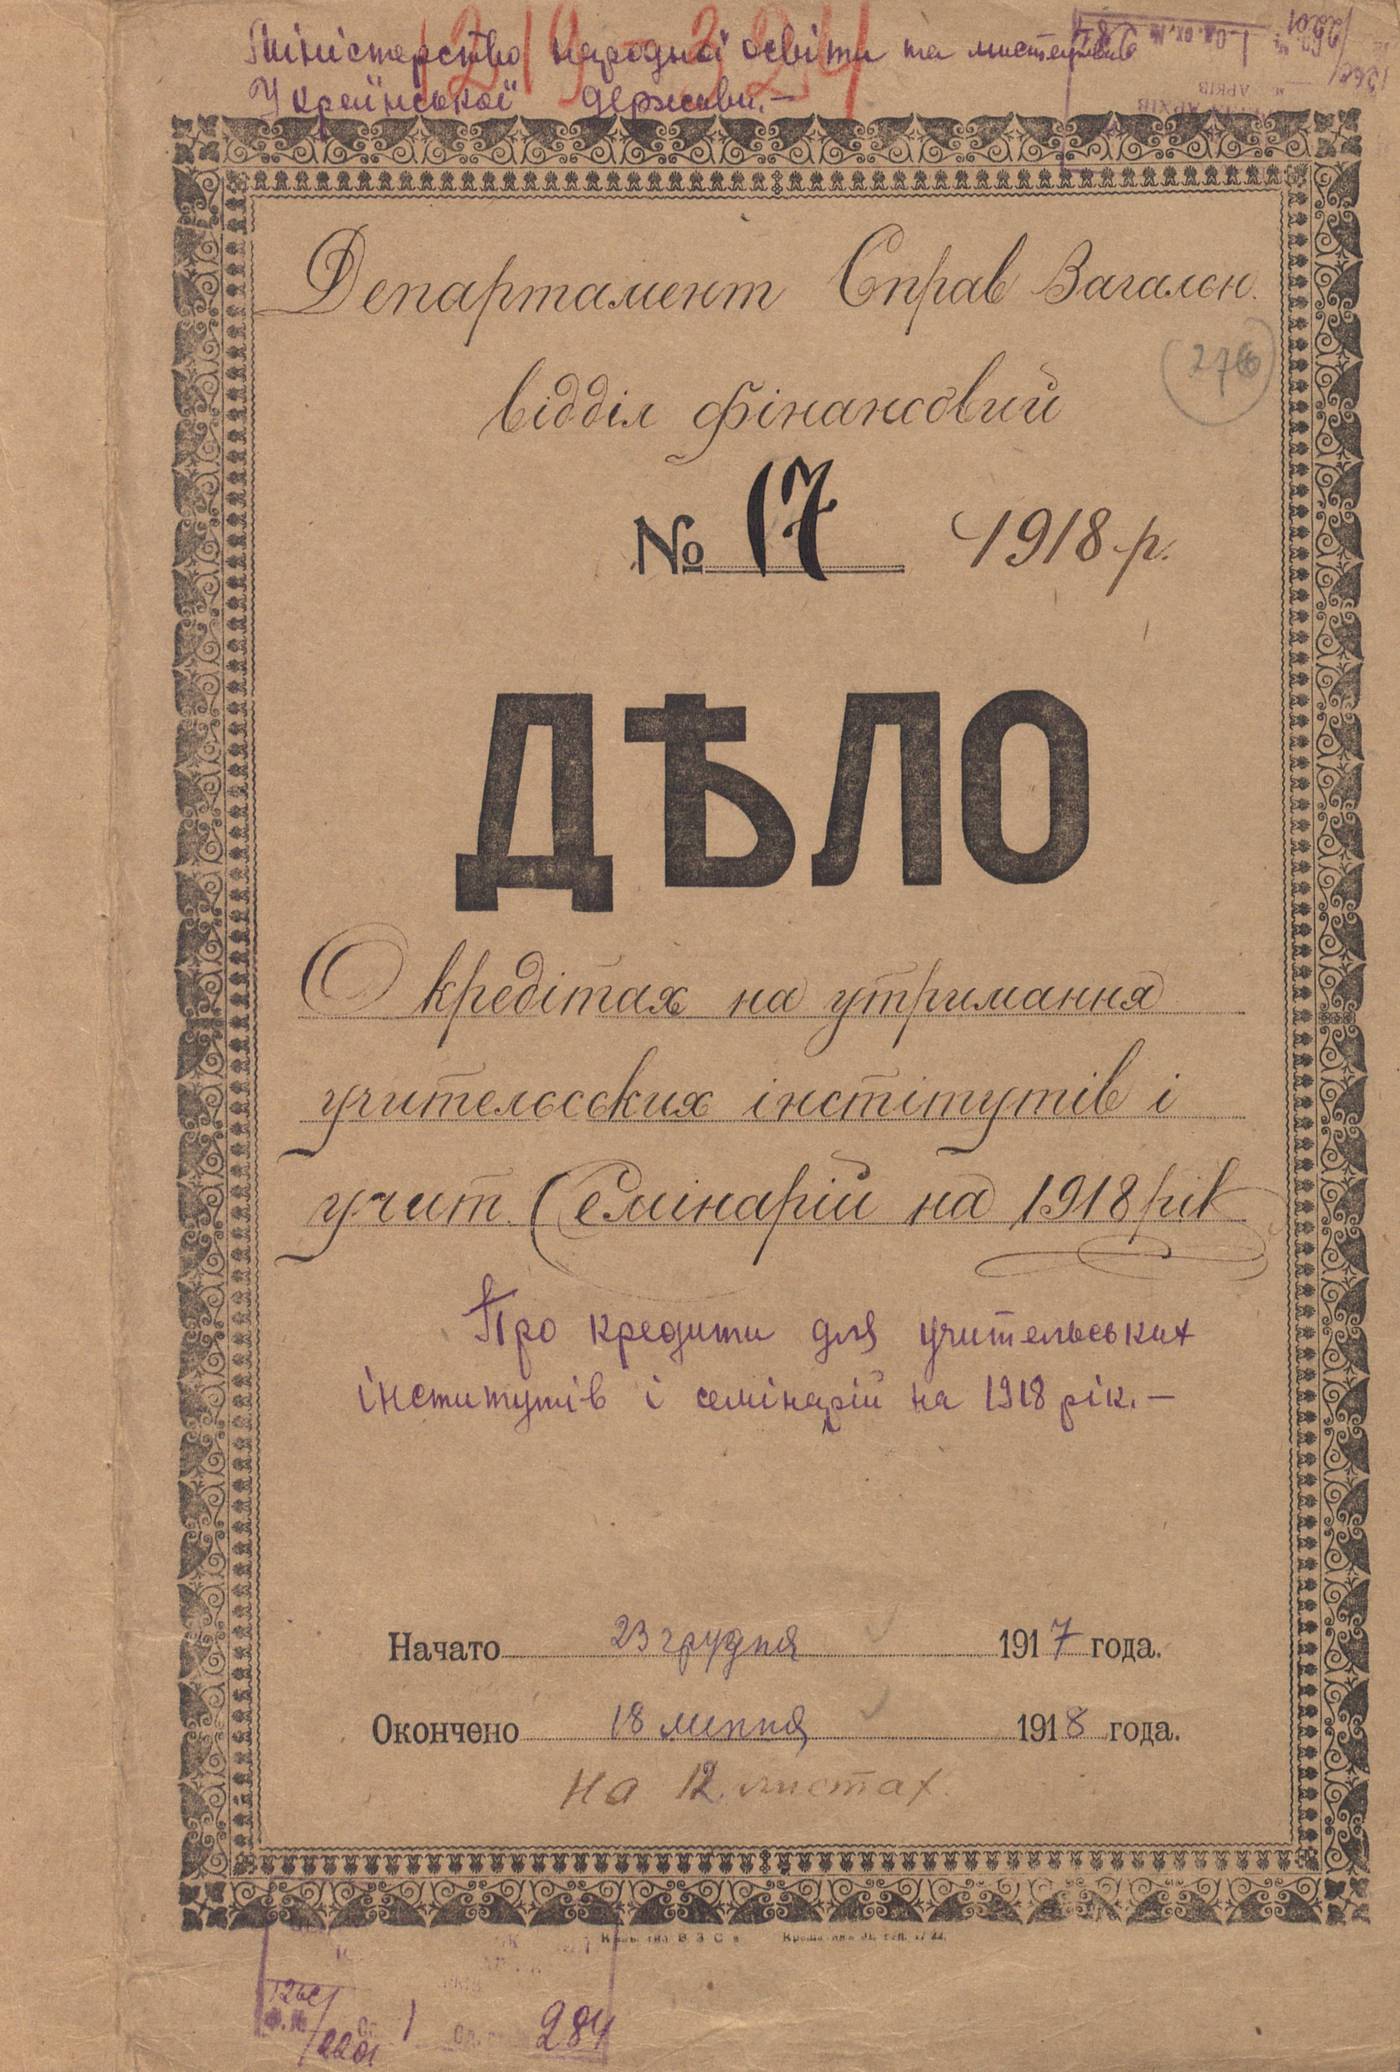 Міністерство народної освіти та мистецтва
Української держави.—
Департамент Справ Загальн.
відділ фінансовий
276
№ 17 1918 р.
ДѢЛО
О кредітах на утримання
учительських інстітутів і
учит. Семінарій на 1918 рік
Про кредити для учительських
інститутів і семінарій на 1918 рік.—
Начато 23 грудня 1917 года.
Окончено 18 липня 1918 года.
На 12 листах.
2201
1
284